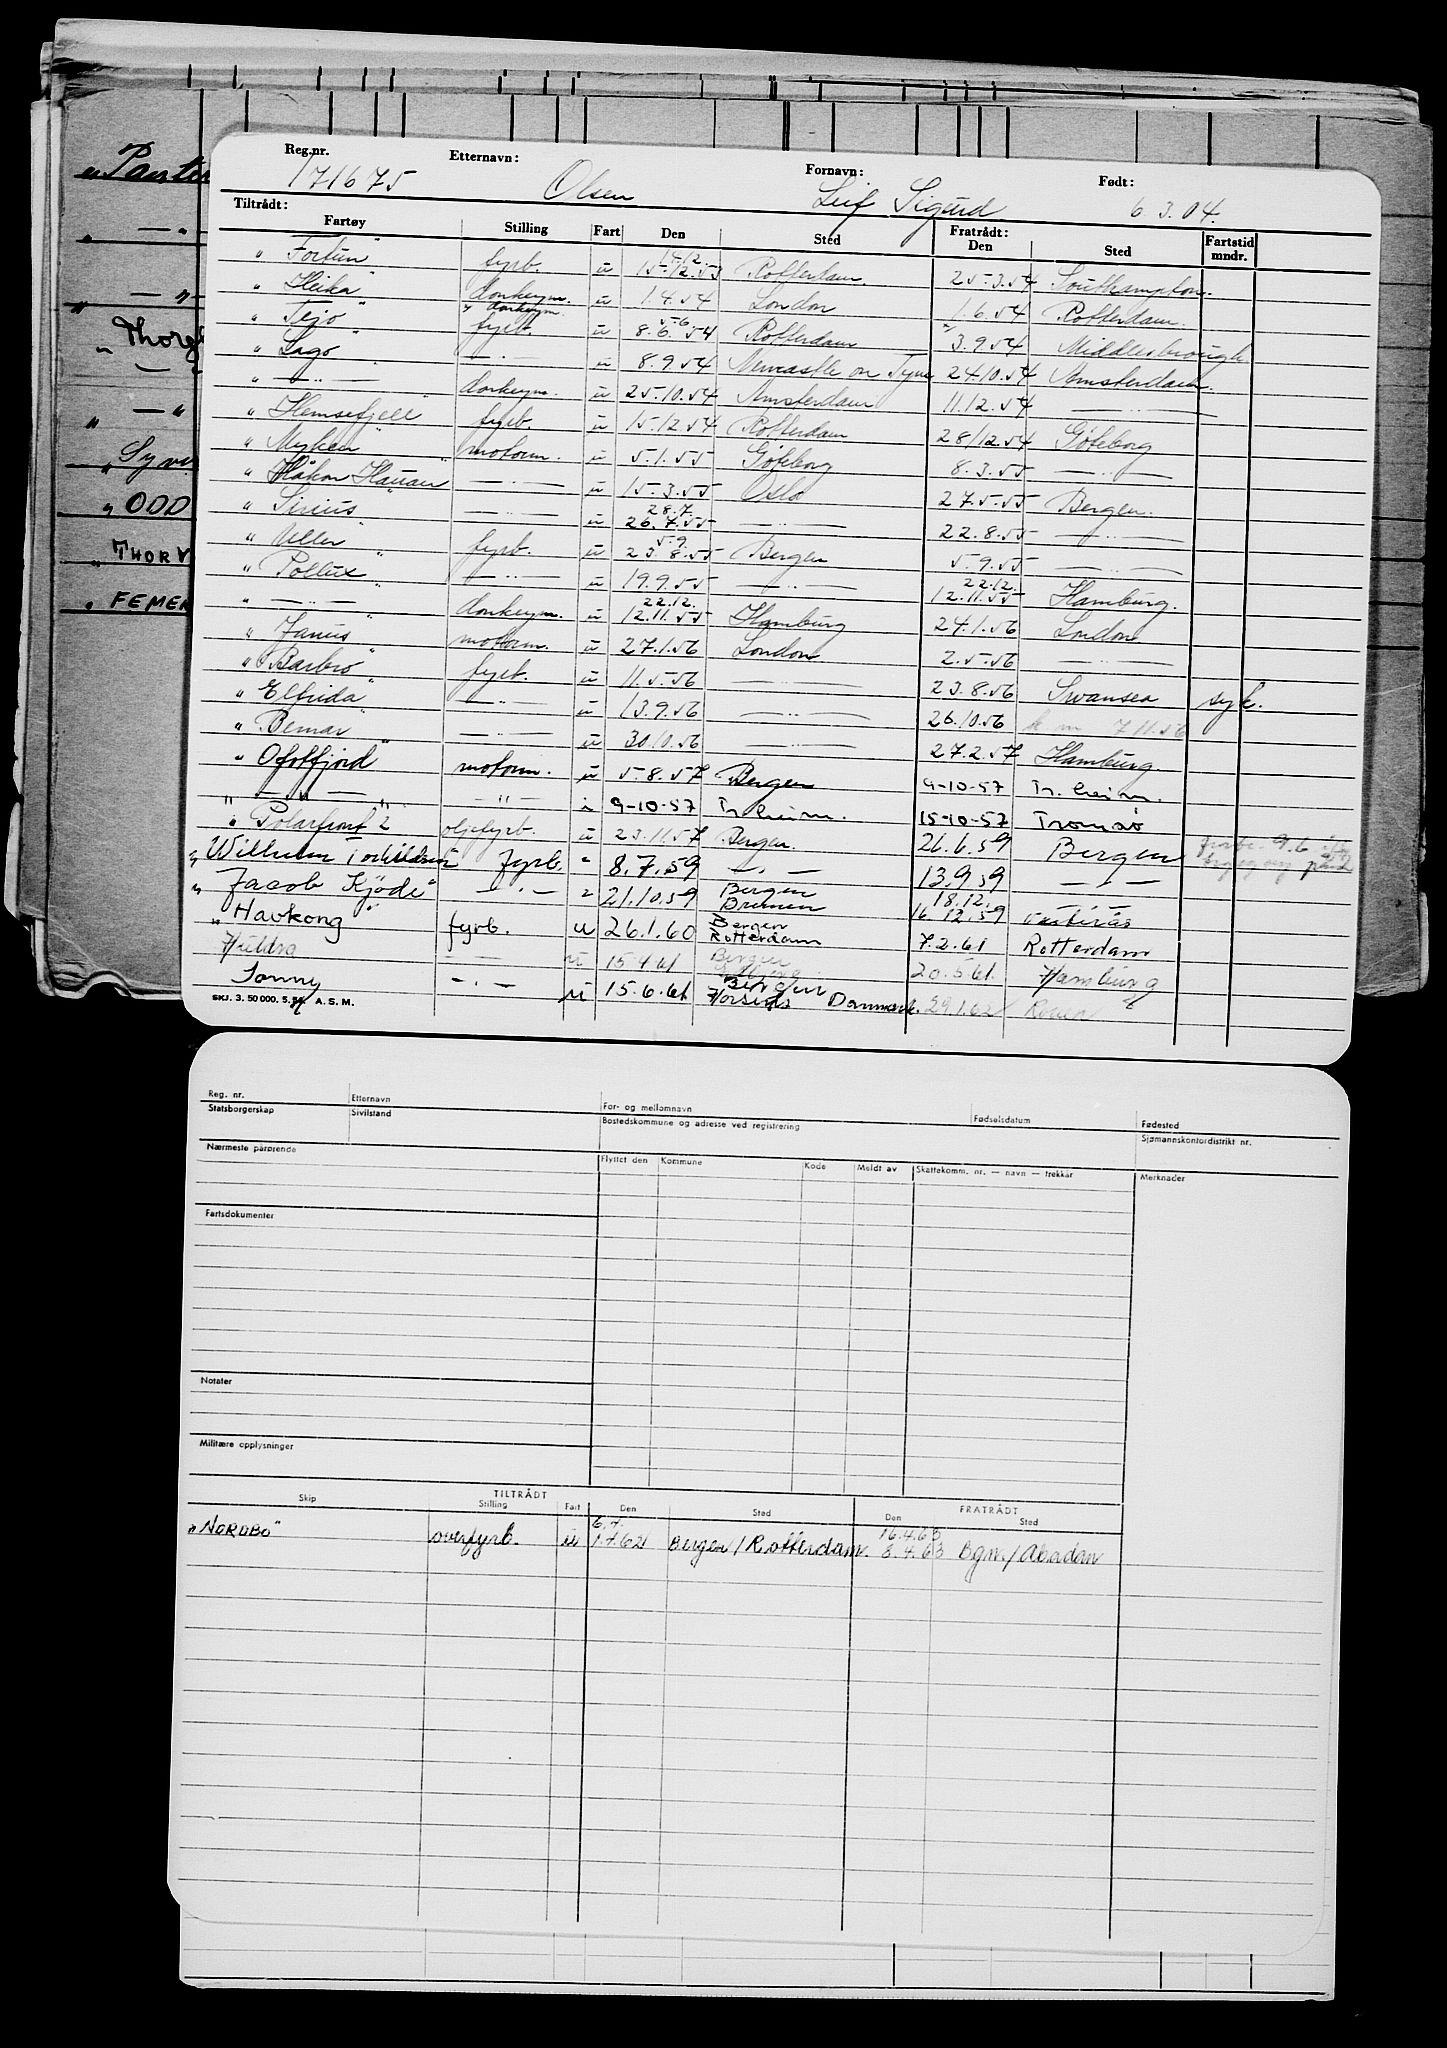 Reg.nr. Etternavn: Fornavn: Født:
171675 Olsen Leif Sigurd 6 3.04.
Tiltrådt: Fratrådt:
Fartøy Stilling Fart Den Sted Den Sted Fartstid mndr.
15.12.
"Fortun" fyrb. u 15.12.53 Rotterdam 25.3.54 Southampton.
"Heika" donkeym. u 1.4.54 London 1.6.54 Rotterdam.
donkeym. 5-6
"Tejo" fyrb. u 8.6.54 Rotterdam 3.9.54 Middlesbrough
"Sago" —..— u 8.9.54 Newcastle on Tyne 24.10.54 Amsterdam.
" —..— donkeym. u 25.10.54 Amsterdam 11.12.54 —..—
"Hemsefjell" fyrb. u 15.12.54 Rotterdam 28/12.54 Göteborg
"Myken" motorm. u 5.1.55 Göteborg 8.3.55 —..—
"Håkon Hauan" —..— u 15.3.55 Oslo 27.5.55 Bergen.
28.7.
"Sirius" —..— u 26.7.55 —..— 22.8.55 —..—
5.9.
"Uller" fyrb. u 23.8.55 Bergen 5.9.55 —..—
22.12.
"Pollux" —..— u 19.9.55 —..— 12.11.55 Hamburg.
22.12.
" —..— donkeym. u 12.11.55 Hamburg 24.1.56 London
"Janus" motorm. u 27.1.56 London 2.5.56 —..—
"Barbro" fyrb. u 11.5.56 —..— 23.8.56 Swansea syk.
"Elfrida" —..— u 13.9.56 —..— 26.10.56 7 11.56
"Bemar" —..— u 30.10.56 —..— 27.2.57 Hamburg.
"Ofotfjord" motorm. u 5.8.57 Bergen 9-10-57 Tr.heim.
" —"— " —"— i 9-10-57 Tr.heim. 15-10-57 Tromsø
"Polarfront 2 oljefyrb. u 23.11.57 Bergen. 26.6.59 Bergen
"Wilhelm Torkildsen" fyrb. " 8.7.59 —.— 13.9.59 —.—
"Jacob Kjøde" —.— " 21.10.59 Bergen Bremen 18.12. 16.12.59
"Havkong" fyrb. u 26.1.60 Bergen Rotterdam 7.2.61 Rotterdam
Huldra — — u 15.4.61 Bergen 20.5.61. Hamburg
Sonny —.— u 15.6.61 Bergen Horsens Danmark. 29.1.62 Rouen
SKJ. 3. 50 000. 5. 54. A.S.M.
"Panter
" — "
" — " —
" Thorg
" — "
" — "
" Syve
" ODD
" THORV
" FEMER
Reg. nr. Etternavn For- og mellomnavn Fødselsdatum Fødested
Statsborgerskap Sivilstand Bostedskommune og adresse ved registrering Sjømannskontordistrikt nr.
Nærmeste pårørende Flyttet den Kommune Kode Meldt av Skattekomm. nr. — navn — trekkår Merknader
Fartsdokumenter
Notater
Militære opplysninger
TILTRÅDT FRATRÅDT
Skip Stilling Fart Den Sted Den Sted
6.7. 16.4.63
"NORDBO" overfyrb. u 1.7.62 Bergen/Rotterdam. 8.4.63 Bgn./Abadan